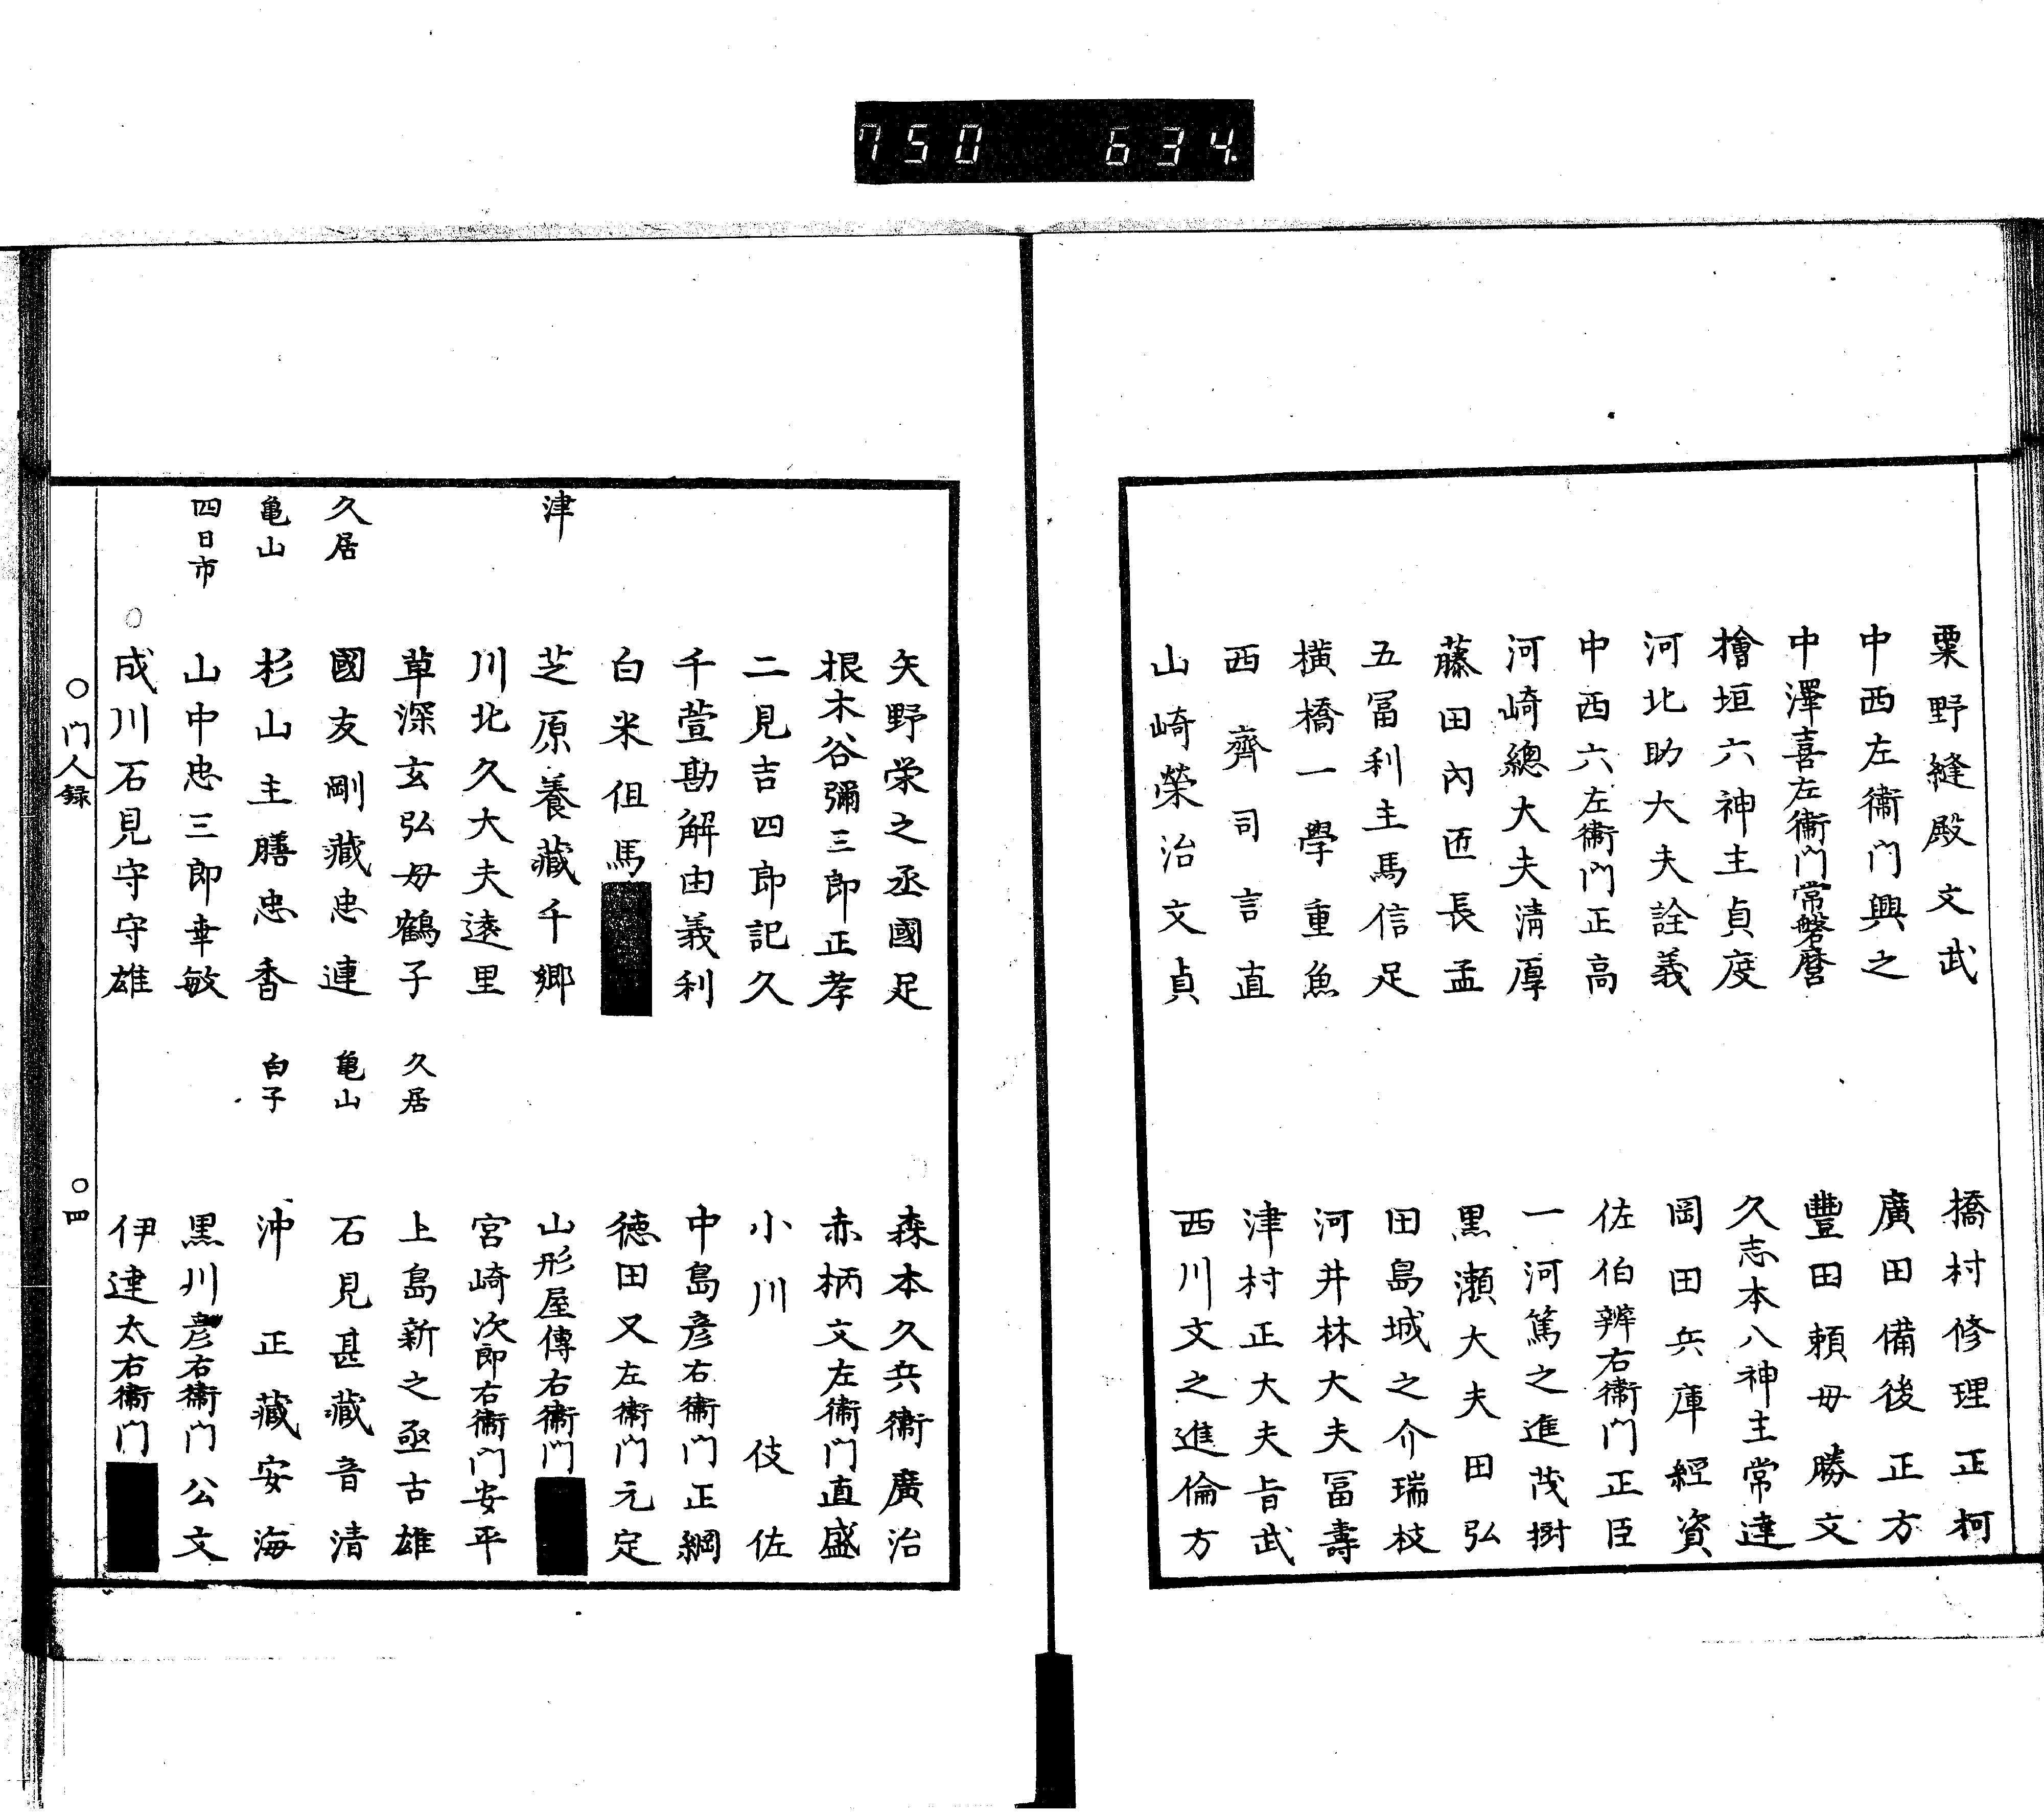 750 634
粟野縫殿文武
中西左衞門興之
中澤喜左衞門常磐麿
檜垣六神主貞度
河北助大夫詮義
中西六左衞門正高
河崎總大夫清厚
藤田內匠長孟
五冨利主馬信足
橫橋一學重魚
西齊司言直
山崎榮治文貞
橋村修理正柯
廣田備後正方
豐田賴母勝文
久志本八神主常達
岡田兵庫經資
佐伯辨右衞門正臣
一河篤之進茂樹
黒瀬大夫田弘
田島城之介瑞枝
河井林大夫冨壽
津村正大夫旨武
西川文之進倫方
矢野栄之丞國足
根木谷彌三郎正孝
二見吉四郎記久
千萱勘解由義利
白米但馬
津 芝原養藏千鄉
川北久大夫遠里
草深玄弘母鶴子
久居 國友剛藏忠連
亀山 杉山主膳忠香
四日市 山中忠三郎幸敏
成川石見守守雄
森本久兵衞廣治
赤柄文左衞門直盛
小川伎佐
中島彦右衞門正綱
徳田又左衞門元定
山形屋傳右衞門
宮崎次郎右衞門安平
久居 上島新之亟古雄
亀山 石見甚藏音清
白子 沖正藏安海
黒川彦右衞門公文
伊達太右衞門
○門人録 ○四